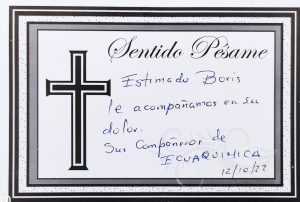 Sentido Pésame
Estimado Boris
le acompañamos en su
dolor.
Sus Compañeros de
ECUAQUIMICA
12/10/22